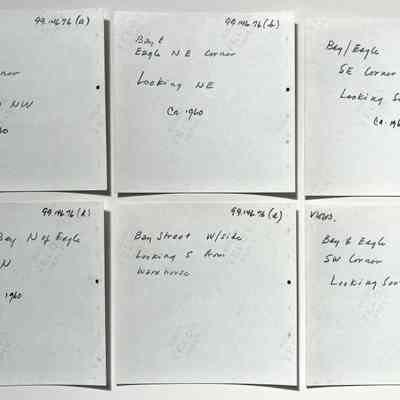 99.14676 (a)
NW
99.14676 (b)
Bay &
Eagle NE Corner
Looking NE
Ca. 1960
Bay/Eagle
SE Corner
Looking
Bay N of Eagle
N
1960
99.14676 (e)
Bay Street W/side
Looking S from
Warehouse
Views.
Bay & Eagle
SW Corner
Looking